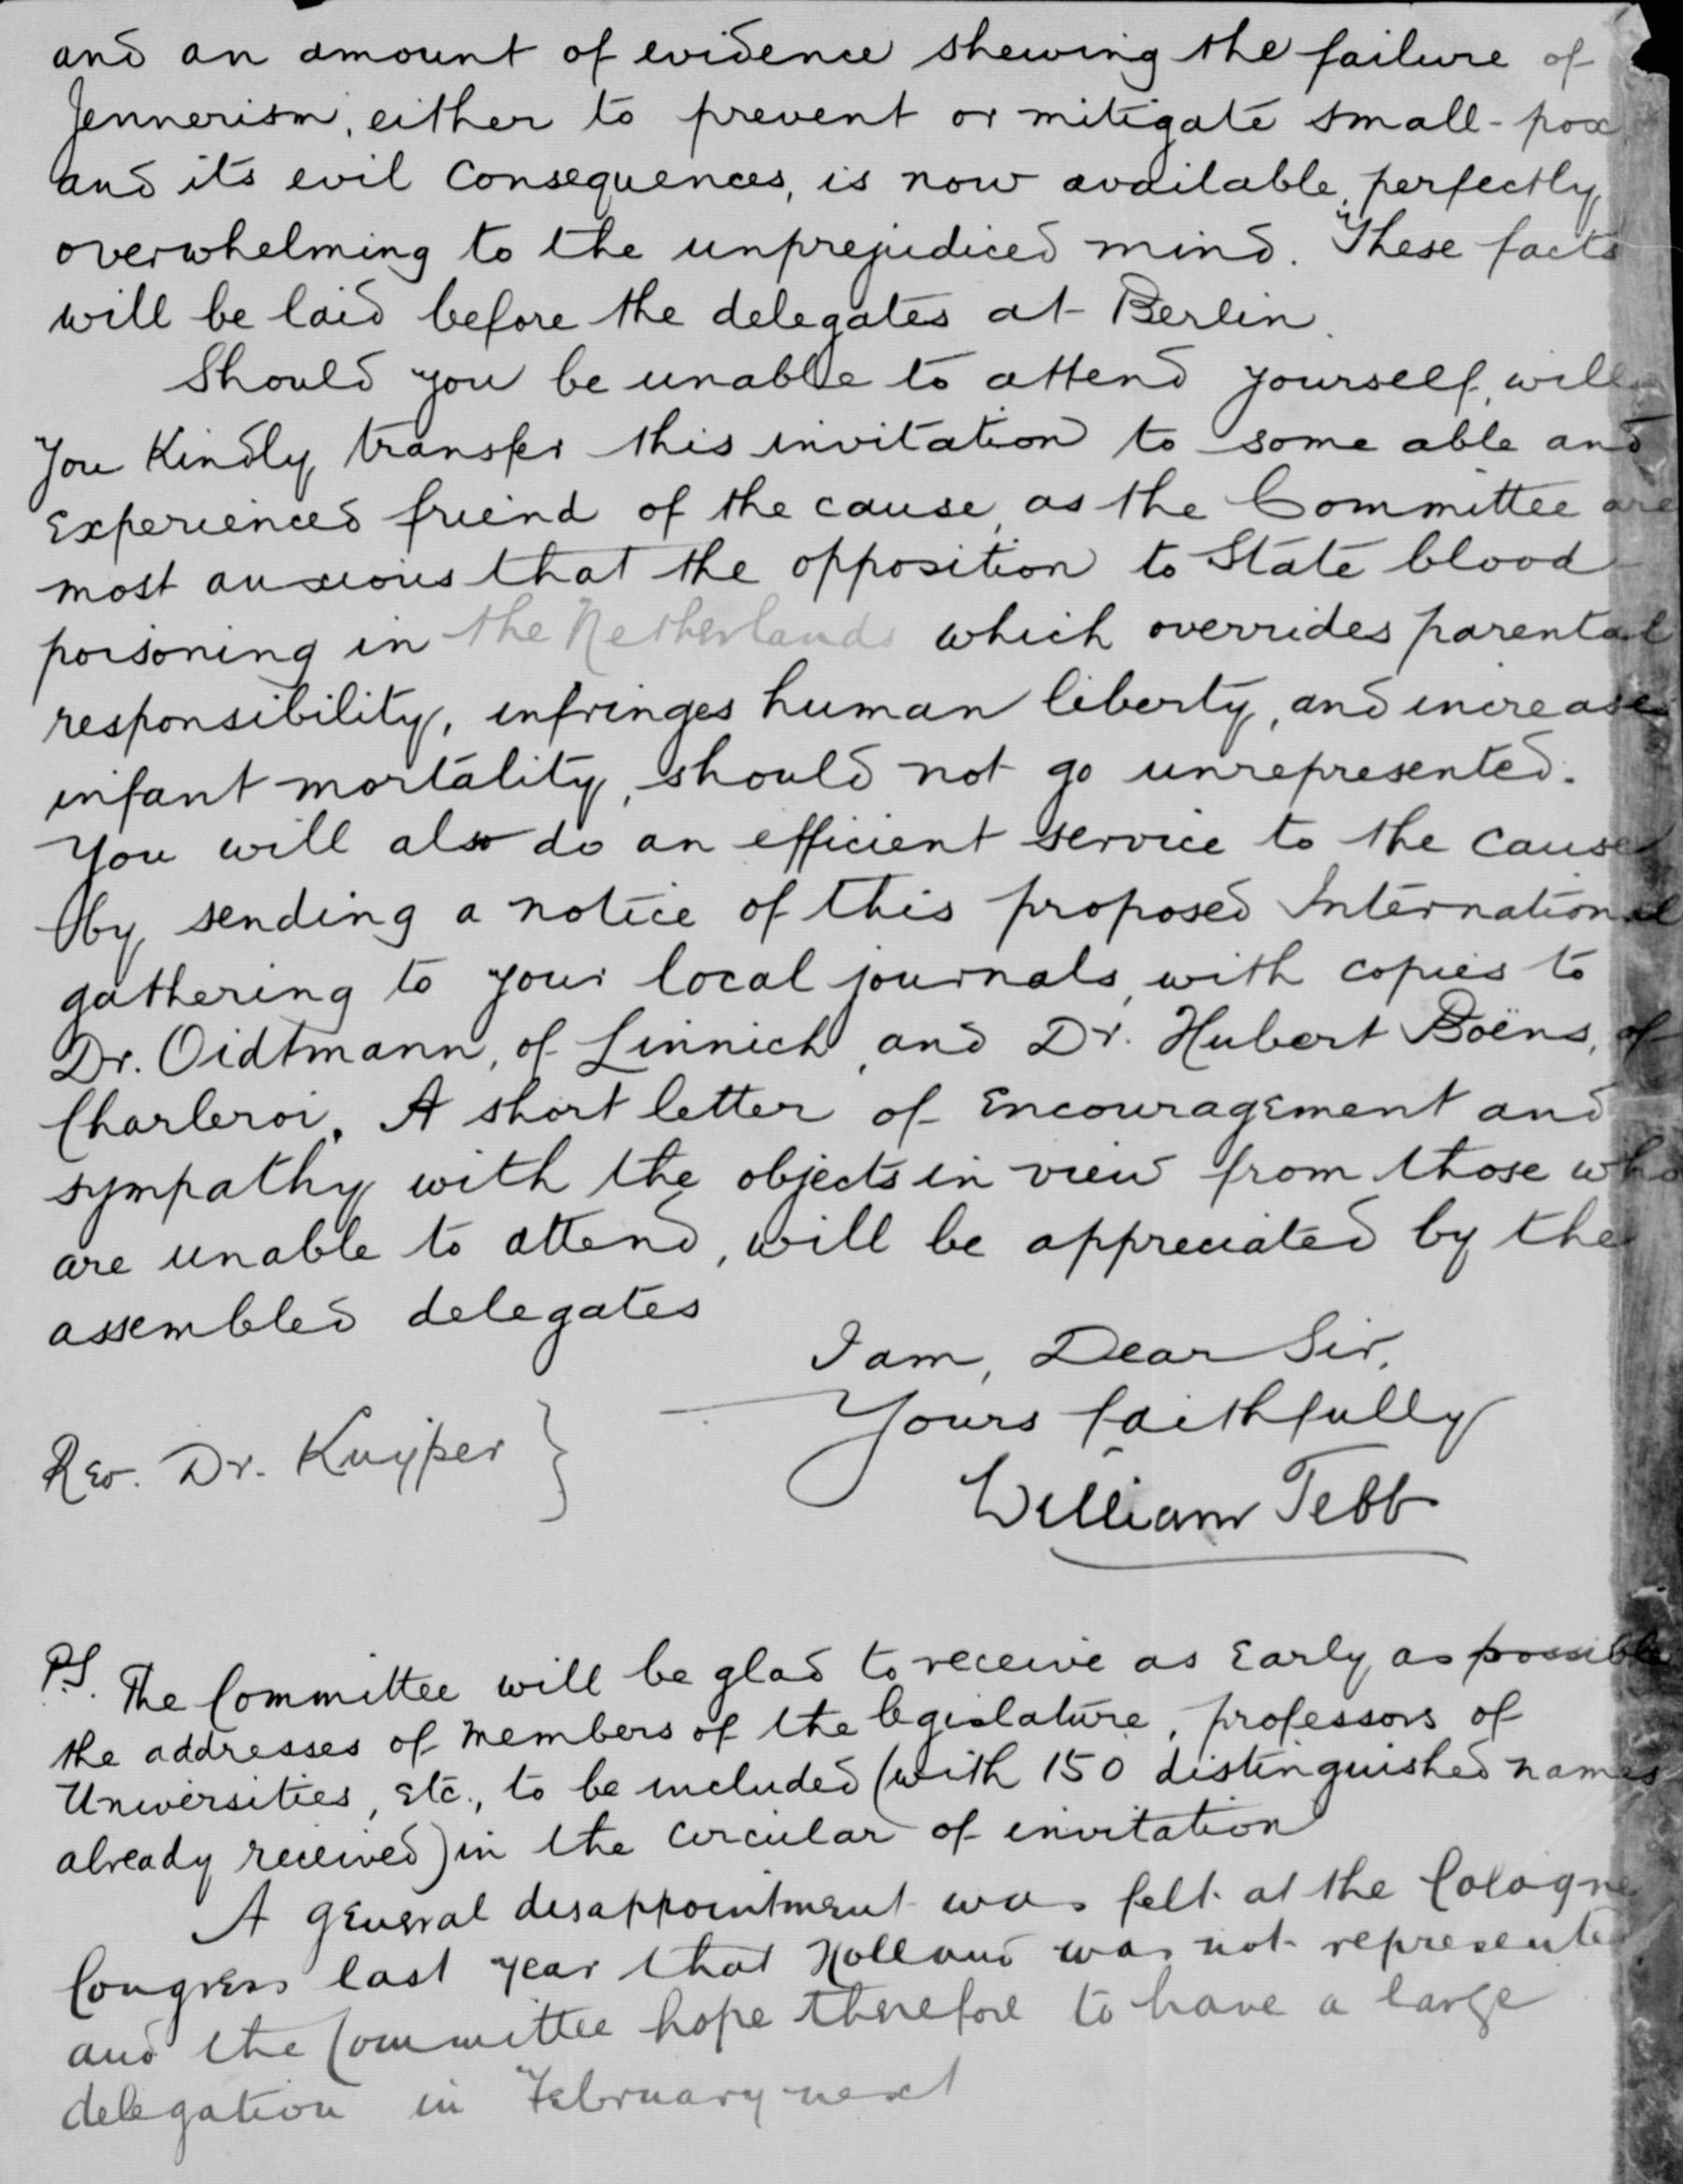 and an amount of evidence shewing the failure of
Jennerism, either to prevent or mitigate small-pox
and its evil consequences, is now available, perfectly
overwhelming to the unprejudiced mind. These facts
will be laid before the delegates at Berlin.
Should you be unable to attend yourself, will
you kindly transfer this invitation to some able and
experienced friend of the cause, as the Committee are
most anxious that the opposition to State blood-
poisoning in the Netherlands which overrides parental
responsibility, infringes human liberty, and increases
infant mortality, should not go unrepresented.
You will also do an efficient service to the cause
by sending a notice of this proposed International
gathering to your local journals, with copies to
Dr. Oidtmann, of Linnich, and Dr. Hubert Boëns, of
Charleroi. A short letter of encouragement and
sympathy with the objects in view from those who
are unable to attend, will be appreciated by the
assembled delegates
I am, Dear Sir,
Yours faithfully
Rev. Dr. Kuijper }
William Tebb
P.S. The Committee will be glad to receive as early as possible
the addresses of members of the legislature, professors of
Universities, etc., to be included (with 150 distinguished names
already received) in the circular of invitation
A general disappointment was felt at the Cologne
Congress last year that Holland was not represented
and the Committee hope therefore to have a large
delegation in February next